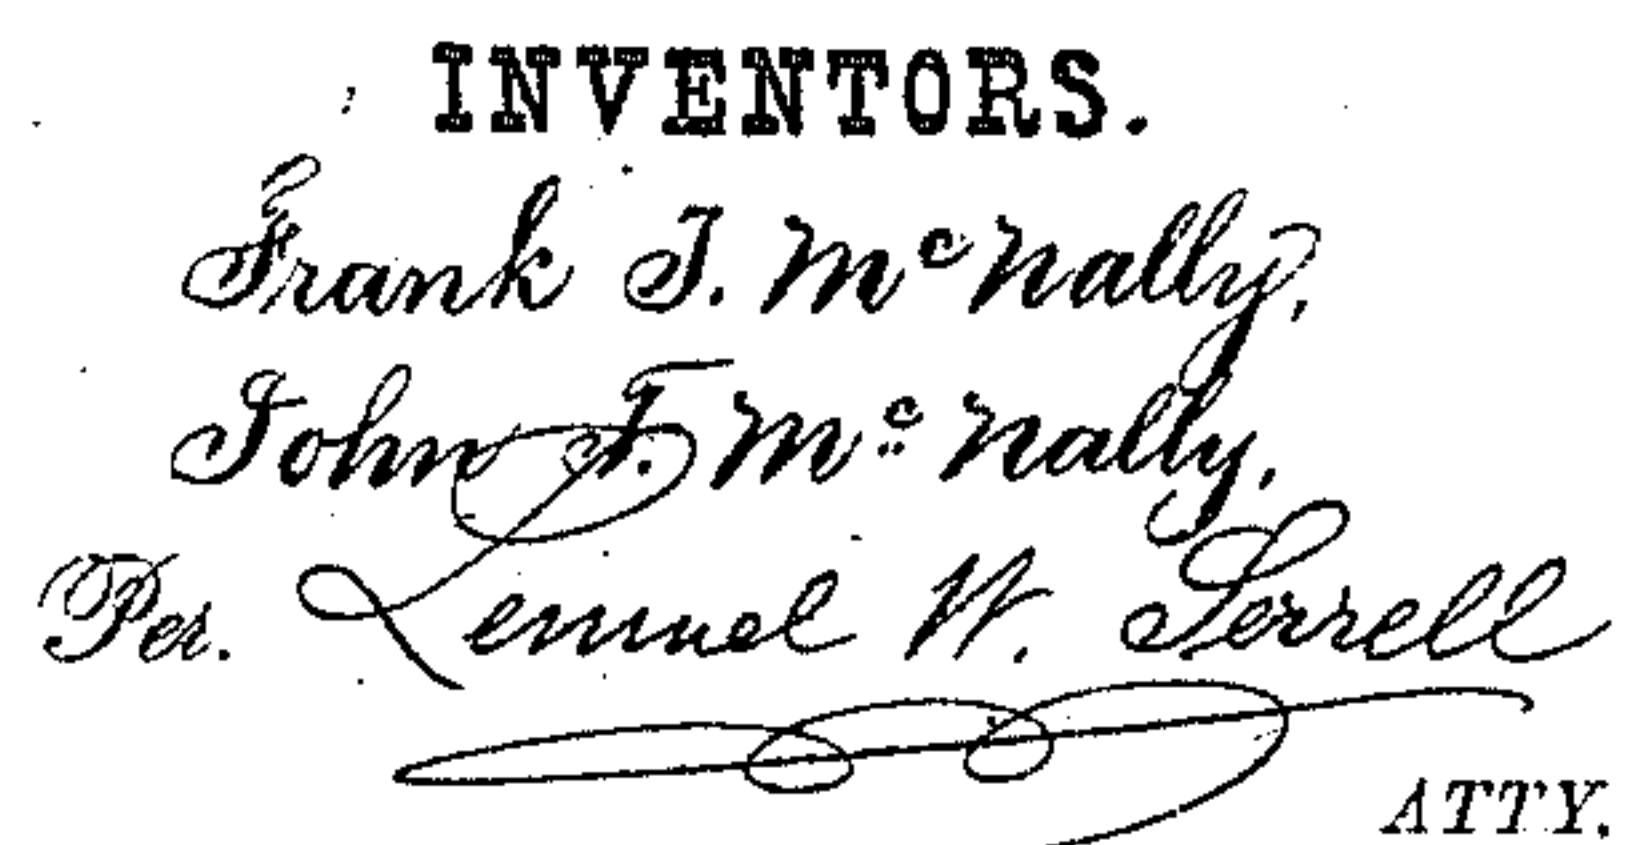 INVENTORS.
Frank J. McNally,
John F. McNally,
Per. Lemuel W. Serrell
ATTY.